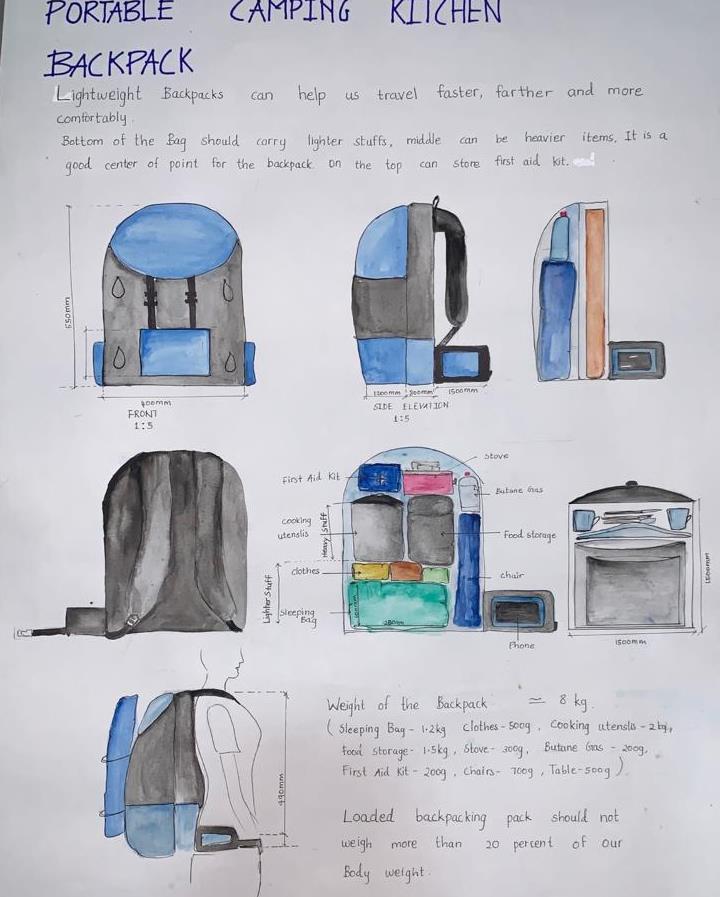 PORTABLE CAMPING KITCHEN
BACKPACK
Lightweight Backpacks can help us travel faster, farther and more
comfortably.
Bottom of the Bag should carry lighter stuffs, middle can be heavier items. It is a
good center of point for the backpack. On the top can store first aid kit.
550mm
400mm
FRONT
1:5
1200mm 800mm 1500mm
SIDE ELEVATION
1:5
First Aid Kit
Stove
Butane Gas
cooking
utenslis
Heavy Stuff
Food storage
clothes
chair
Lighter Stuff
Sleeping
Bag
280mm
Phone
1500mm
1500mm
490mm
Weight of the Backpack ≃ 8 kg.
(Sleeping Bag - 1.2kg Clothes - 500g, Cooking utenslis - 2kg,
food storage - 1.5kg, Stove - 300g, Butane Gas - 200g,
First Aid Kit - 200g, Chairs - 700g, Table - 500g)
Loaded backpacking pack should not
weigh more than 20 percent of our
Body weight.